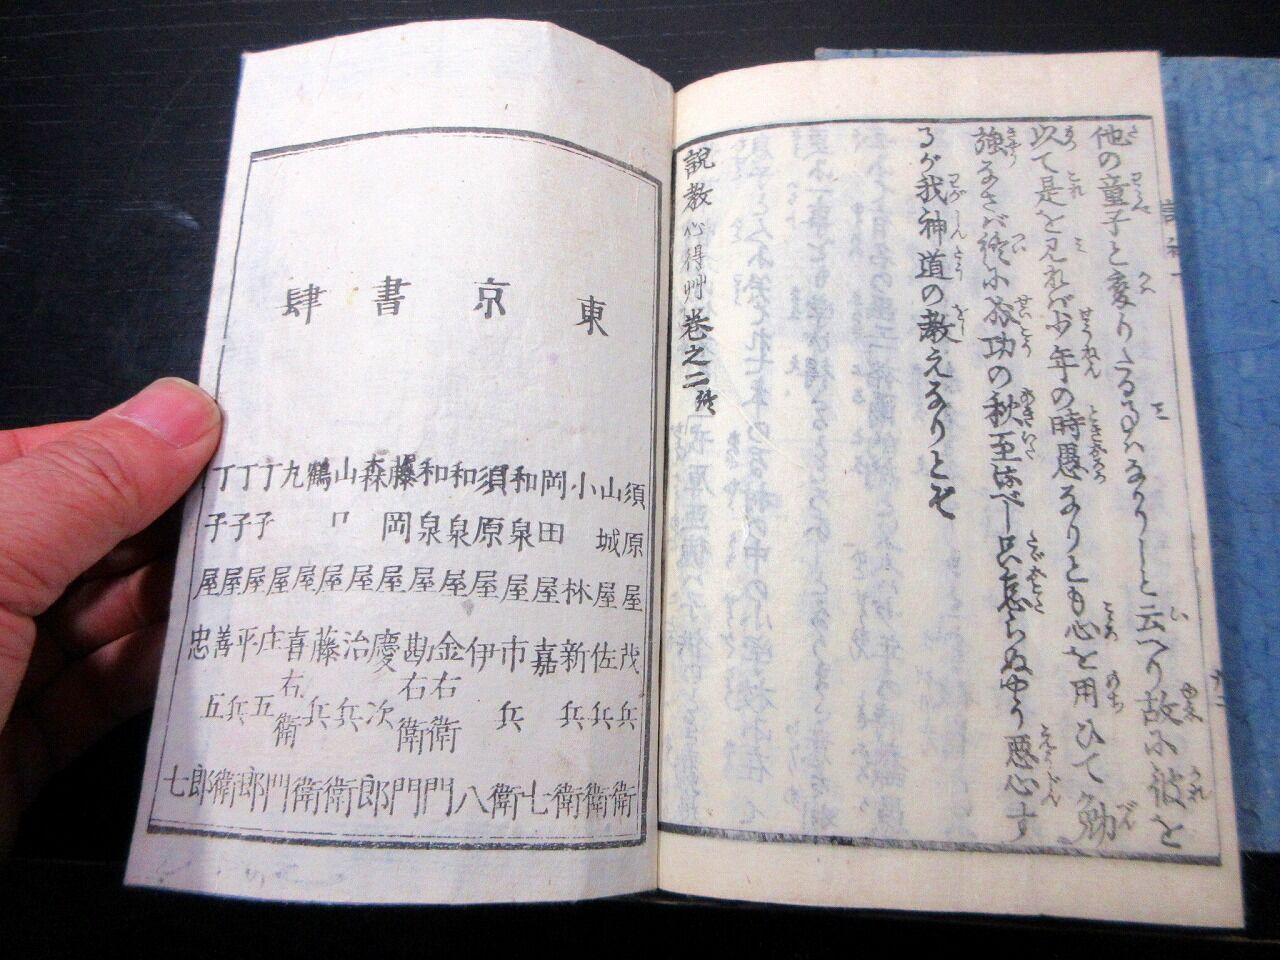 他の童子と変りたる事ハなかりしと云へり故に彼を
以て是を見れバ少年の時愚なりとも心を用ひて勉
強なさバ終に成功の秋至るべし只怠らぬやう心す
るが我神道の教えなりとぞ
説教心得艸巻之二終
東京書肆
須原屋茂兵衛
山城屋佐兵衛
小林新兵衛
岡田屋嘉七
和泉屋市兵衛
須原屋伊八
和泉屋金右衛門
和泉屋勘右衛門
藤岡屋慶次郎
森屋治兵衛
山口屋藤兵衛
鶴屋喜右衛門
丸屋庄五郎
丁子屋平兵衛
丁子屋善五郎
丁子屋忠七